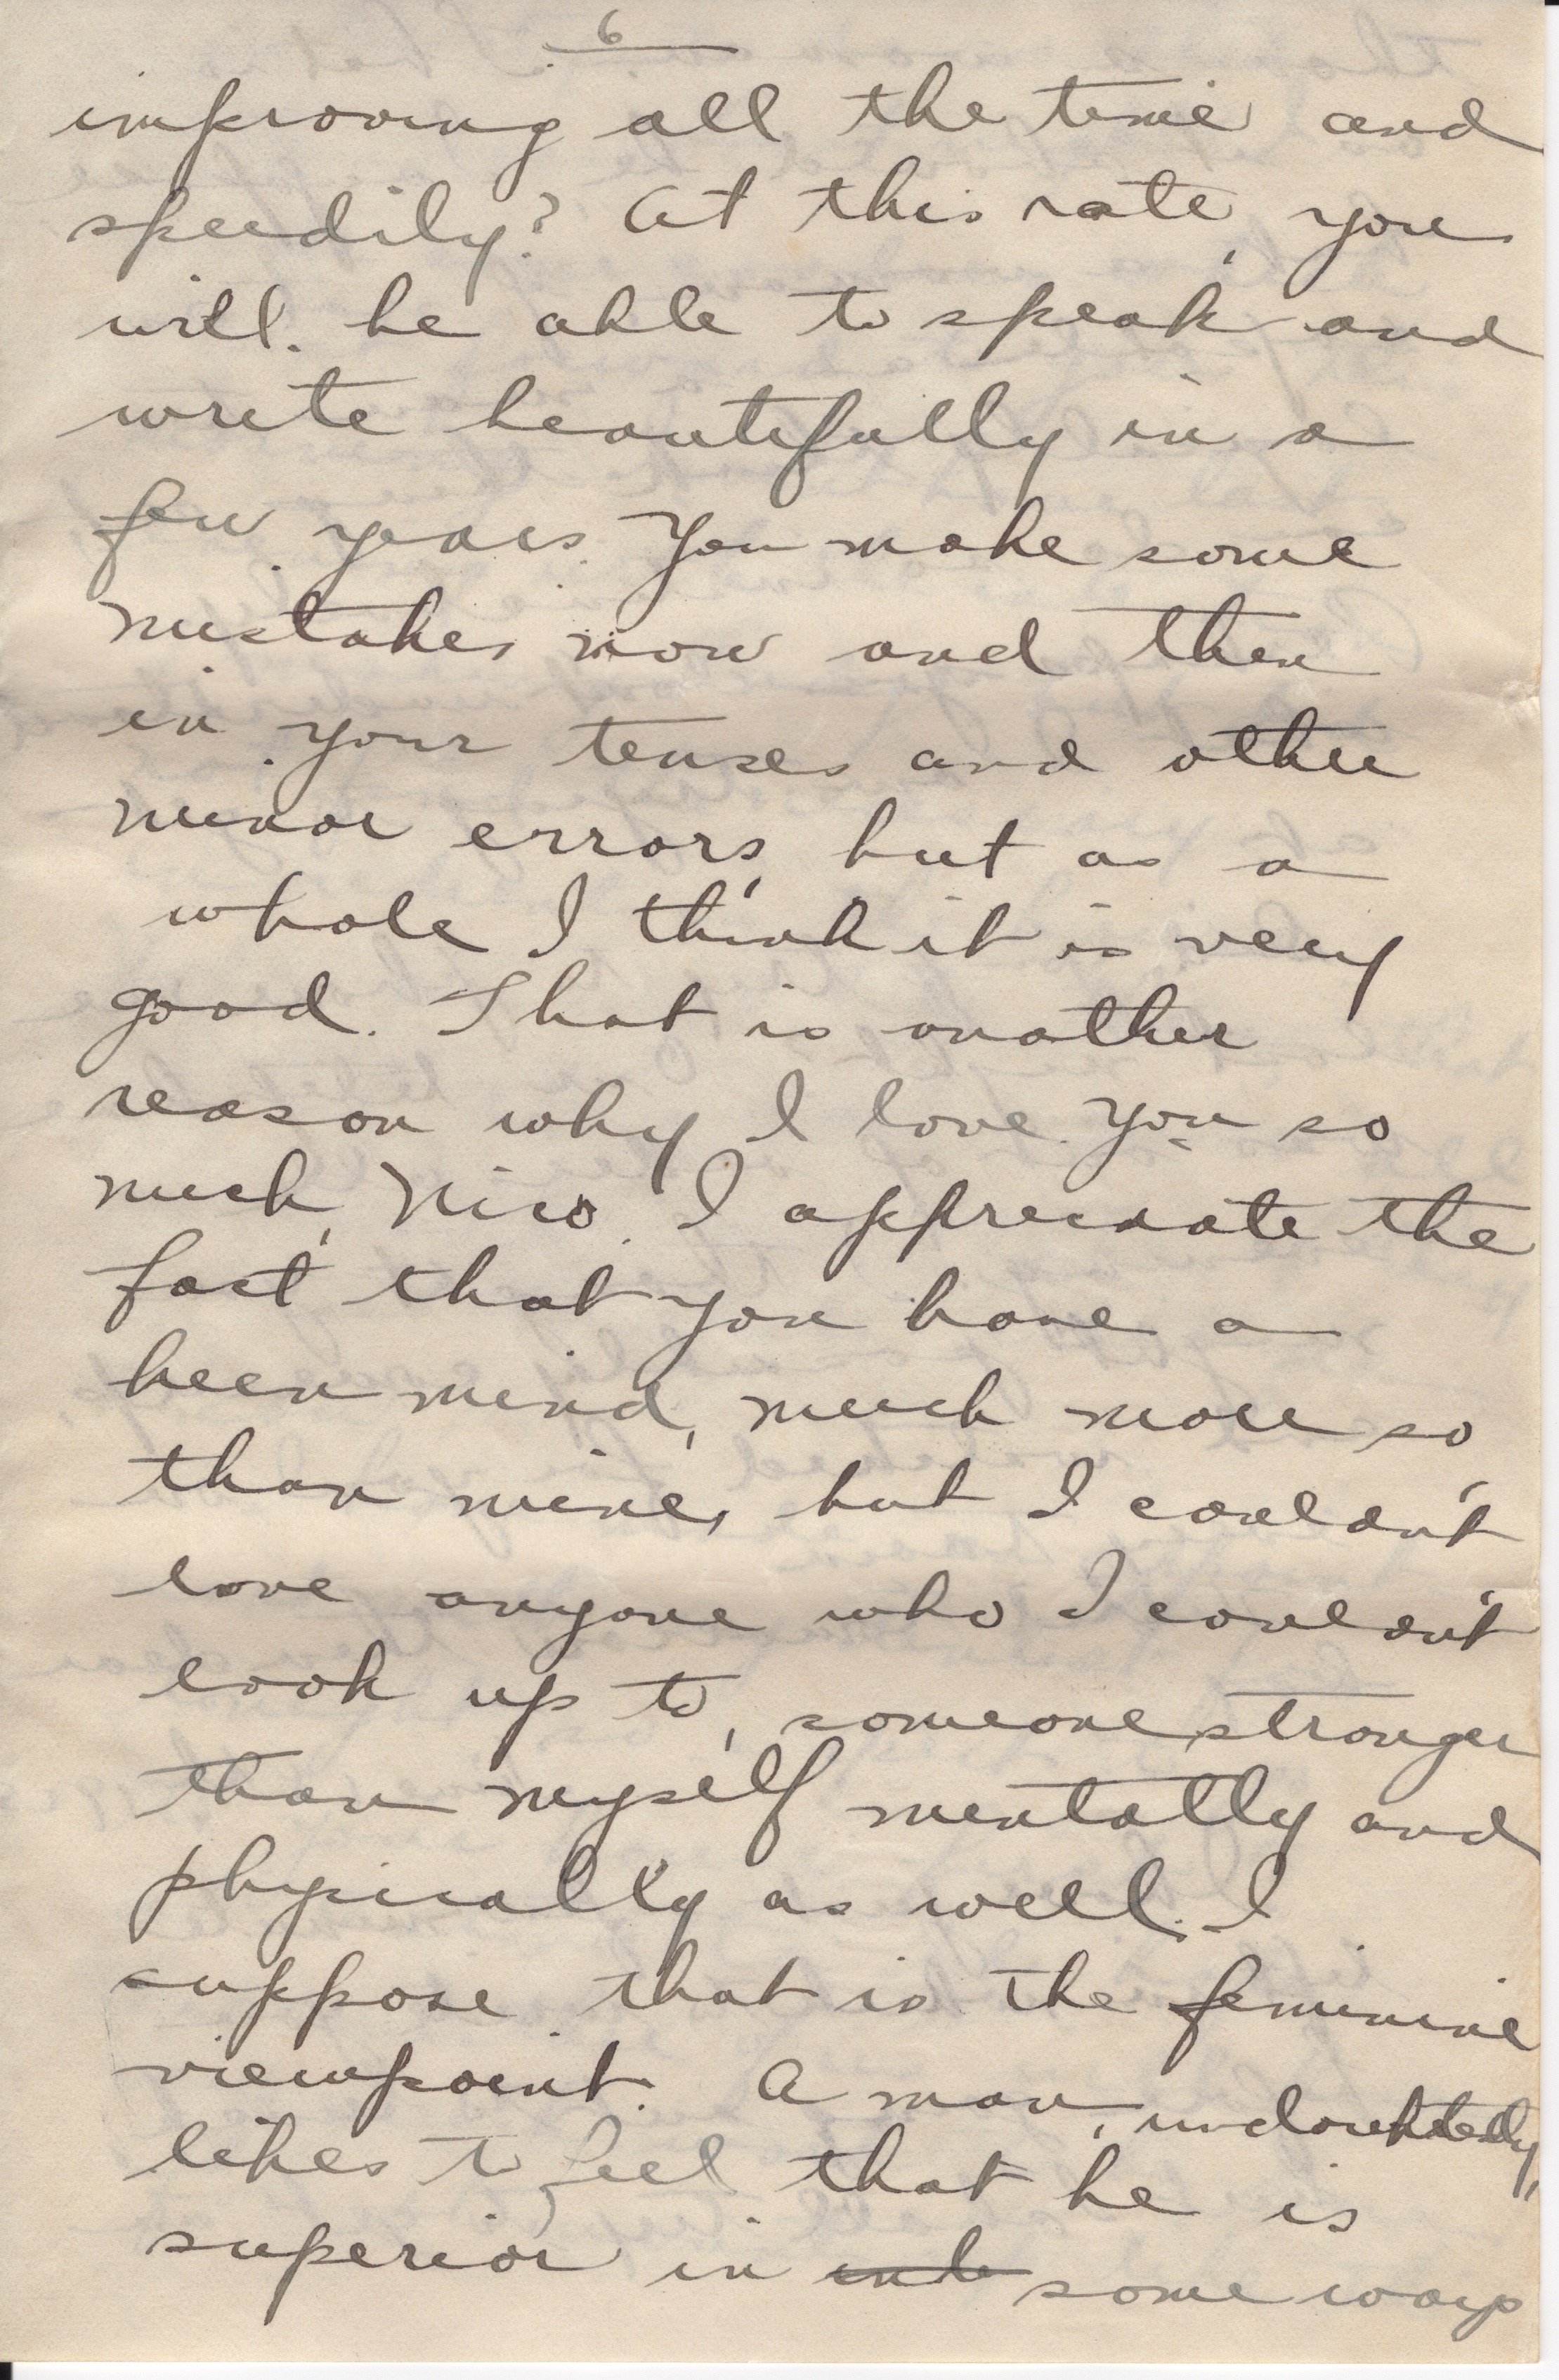 6
improving all the time and
speedily? At this rate, you
will be able to speak and
write beautifully in a
few years. You make some
mistakes now and then
in your tenses and other
minor errors, but as a
whole I think it is very
good. That is another
reason why I love you so
much, Nico. I appreciate the
fact that you have a
keen mind, much more so
than mine, but I couldn't
love anyone who I couldn't
look up to, someone stronger
than myself mentally and
physically as well. I
suppose that is the feminine
viewpoint. A man, undoubtedly,
likes to feel that he is
superior in some ways